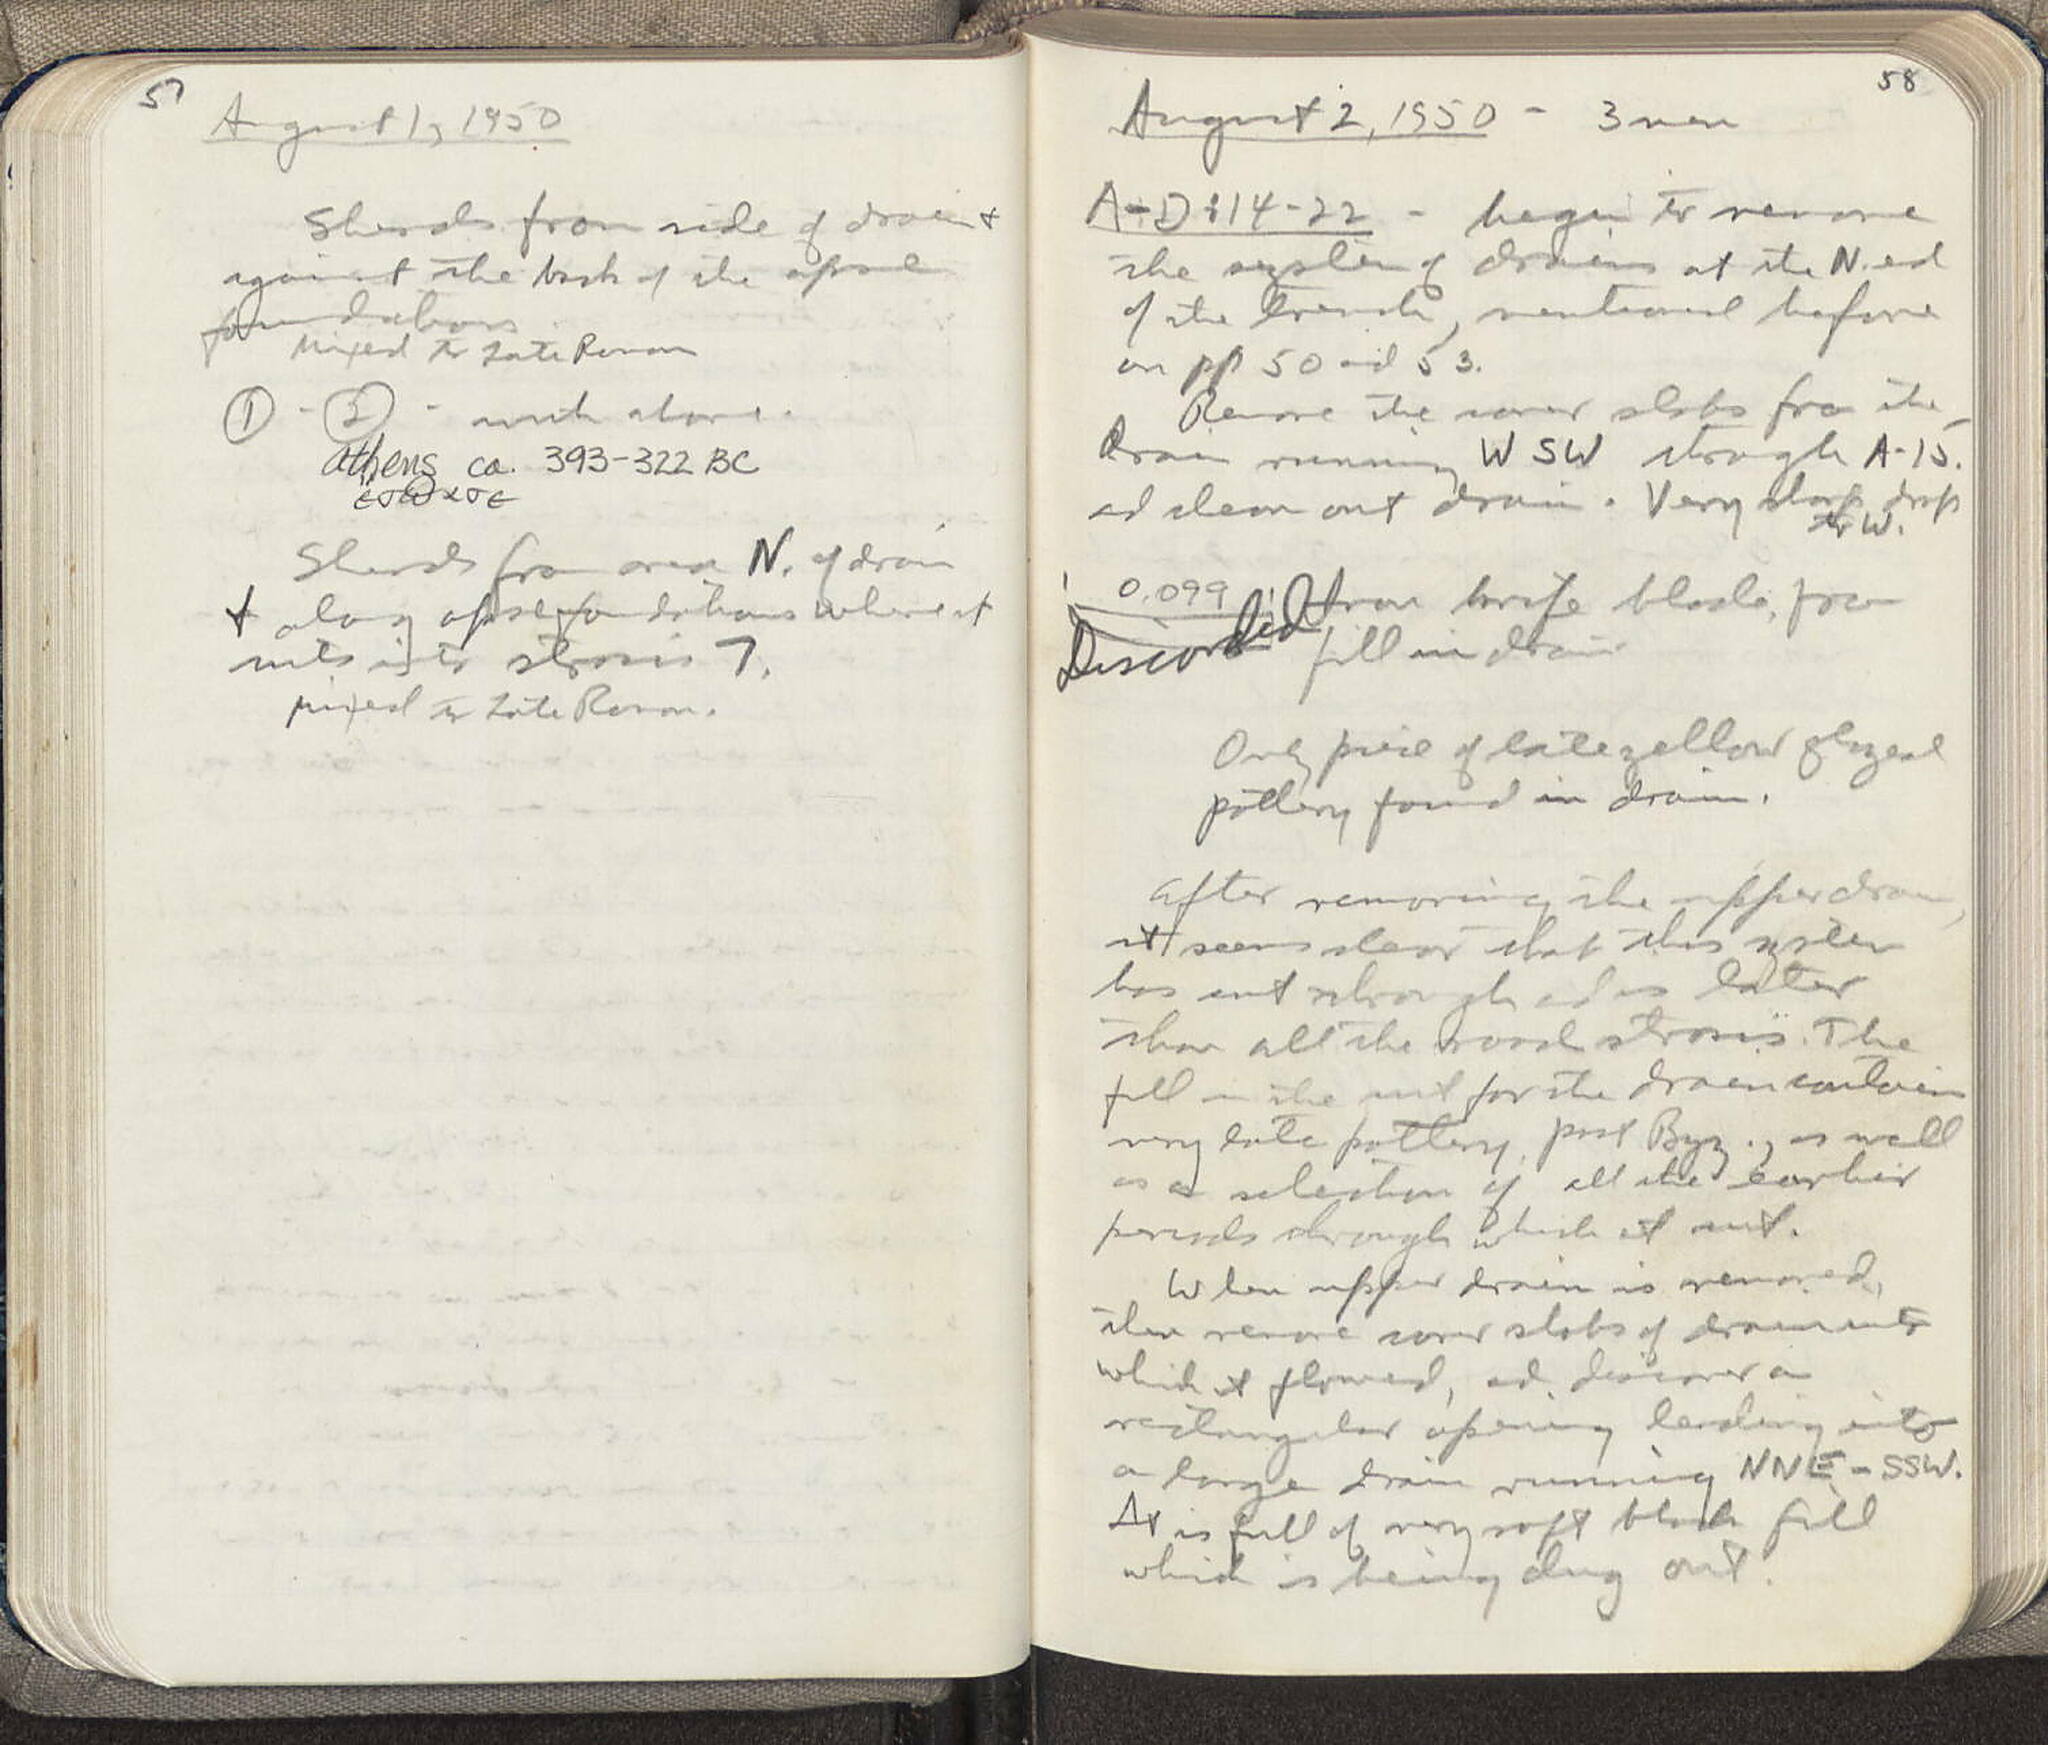 57
August 1, 1950
Sherds from side of drain +
against the back of the apse
foundations.
Mixed to Late Roman
① - ② - with above.
Athens ca. 393-322 BC
Sherds from area N. of drain
+ along apse foundations where it
cuts into strosis 7.
Mixed to Late Roman.
58
August 2, 1950 - 3 men
A-D:14-22 - begin to remove
the system of drains at the N. end
of the trench, mentioned before
on pp 50 and 53.
Remove the cover slabs from the
drain running WSW through A-15.
and clean out drain. Very sharp drop
to W.
0.099 Iron knife blade, from
Discarded fill in drain
Only piece of late yellow glazed
pottery found in drain.
After removing the upper drain,
it seems clear that this system
has cut through and is later
than all the road stroseis. The
fill in the cut for the drain contains
very late pottery, post Byz., as well
as a selection of all the earlier
periods through which it cut.
When upper drain is removed,
then remove cover slabs of drain into
which it flowed, and discover a
rectangular opening leading into
a large drain running NNE-SSW.
It is full of very soft black fill
which is being dug out.